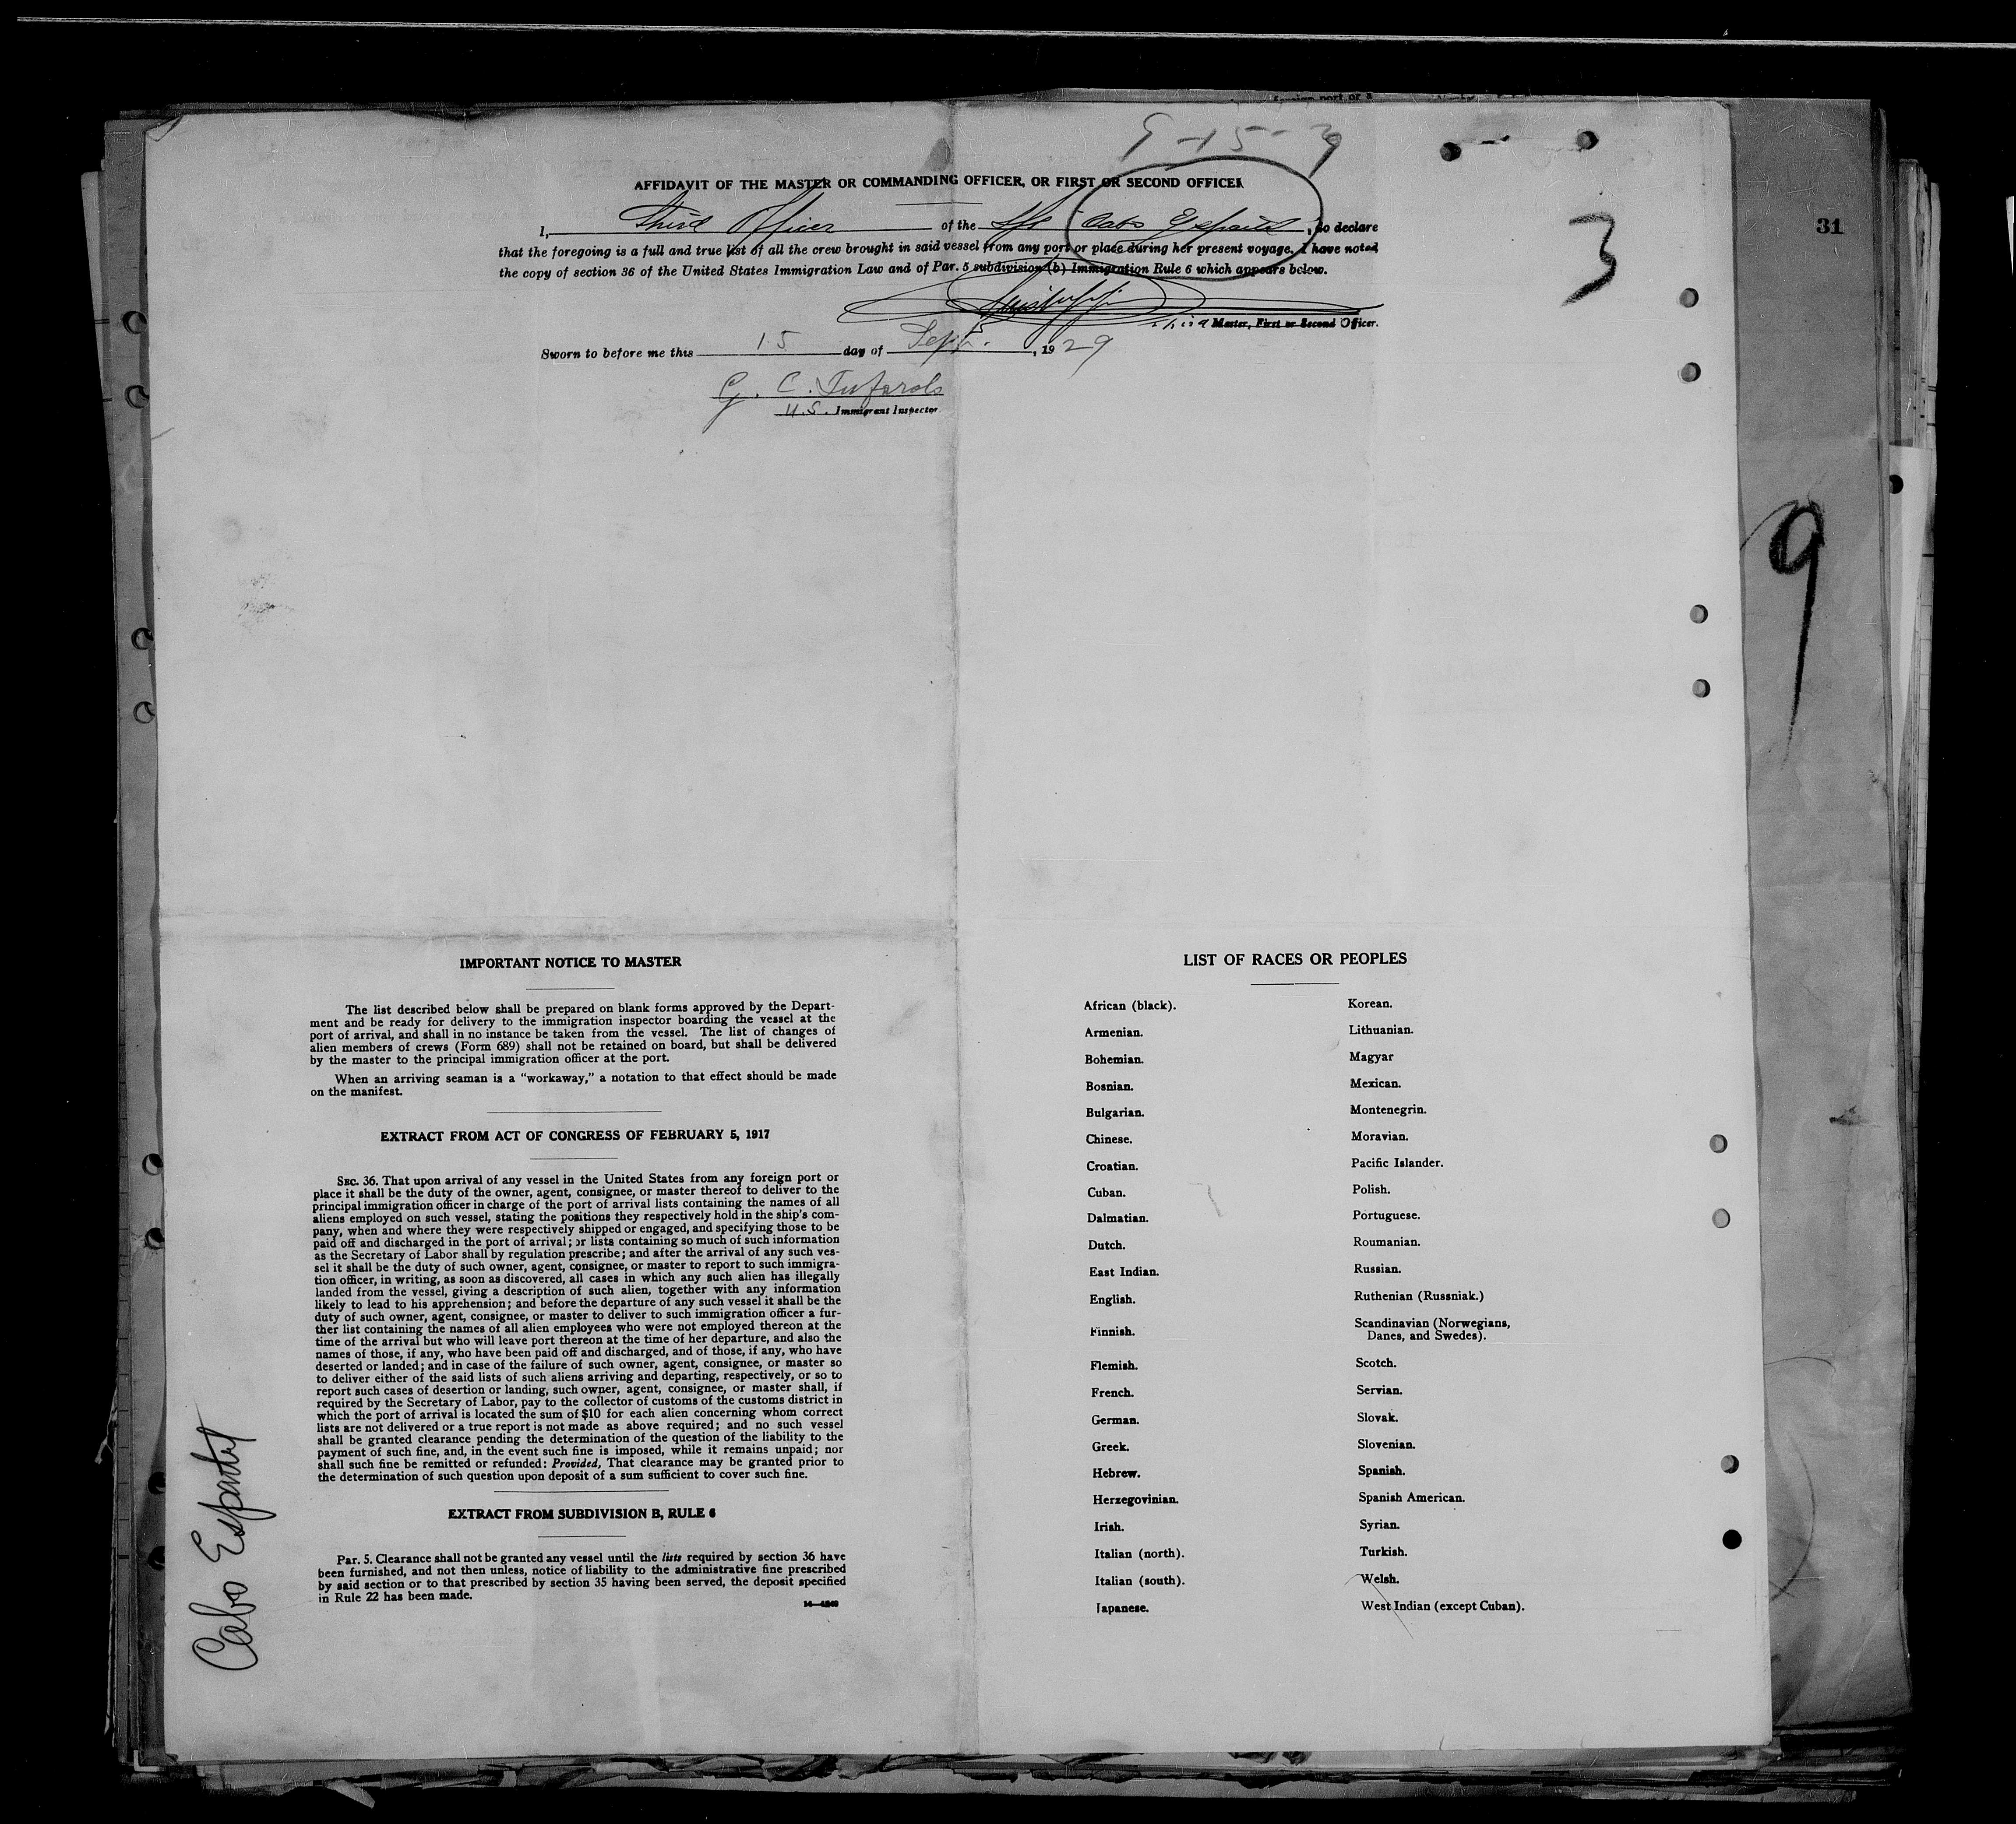 9-15-29
AFFIDAVIT OF THE MASTER OR COMMANDING OFFICER, OR FIRST OR SECOND OFFICER
3
31
I, Third Officer of the S/S Cabo Espartel, do declare
that the foregoing is a full and true list of all the crew brought in said vessel from any port or place during her present voyage. I have noted
the copy of section 36 of the United States Immigration Law and of Par. 5 subdivision (b) Immigration Rule 6 which appears below.
third Master, First or Second Officer.
Sworn to before me this 15 day of Sept., 1929
G. C.
U.S. Immigrant Inspector
9
IMPORTANT NOTICE TO MASTER
The list described below shall be prepared on blank forms approved by the Depart-
ment and be ready for delivery to the immigration inspector boarding the vessel at the
port of arrival, and shall in no instance be taken from the vessel. The list of changes of
alien members of crews (Form 689) shall not be retained on board, but shall be delivered
by the master to the principal immigration officer at the port.
When an arriving seaman is a "workaway," a notation to that effect should be made
on the manifest.
EXTRACT FROM ACT OF CONGRESS OF FEBRUARY 5, 1917
SEC. 36. That upon arrival of any vessel in the United States from any foreign port or
place it shall be the duty of the owner, agent, consignee, or master thereof to deliver to the
principal immigration officer in charge of the port of arrival lists containing the names of all
aliens employed on such vessel, stating the positions they respectively hold in the ship's com-
pany, when and where they were respectively shipped or engaged, and specifying those to be
paid off and discharged in the port of arrival; or lists containing so much of such information
as the Secretary of Labor shall by regulation prescribe; and after the arrival of any such ves-
sel it shall be the duty of such owner, agent, consignee, or master to report to such immigra-
tion officer, in writing, as soon as discovered, all cases in which any such alien has illegally
landed from the vessel, giving a description of such alien, together with any information
likely to lead to his apprehension; and before the departure of any such vessel it shall be the
duty of such owner, agent, consignee, or master to deliver to such immigration officer a fur-
ther list containing the names of all alien employees who were not employed thereon at the
time of the arrival but who will leave port thereon at the time of her departure, and also the
names of those, if any, who have been paid off and discharged, and of those, if any, who have
deserted or landed; and in case of the failure of such owner, agent, consignee, or master so
to deliver either of the said lists of such aliens arriving and departing, respectively, or so to
report such cases of desertion or landing, such owner, agent, consignee, or master shall, if
required by the Secretary of Labor, pay to the collector of customs of the customs district in
which the port of arrival is located the sum of $10 for each alien concerning whom correct
lists are not delivered or a true report is not made as above required; and no such vessel
shall be granted clearance pending the determination of the question of the liability to the
payment of such fine, and, in the event such fine is imposed, while it remains unpaid; nor
shall such fine be remitted or refunded: Provided, That clearance may be granted prior to
the determination of such question upon deposit of a sum sufficient to cover such fine.
EXTRACT FROM SUBDIVISION B, RULE 6
Par. 5. Clearance shall not be granted any vessel until the lists required by section 36 have
been furnished, and not then unless, notice of liability to the administrative fine prescribed
by said section or to that prescribed by section 35 having been served, the deposit specified
in Rule 22 has been made.
Cabo Espartel
LIST OF RACES OR PEOPLES
African (black).
Armenian.
Bohemian.
Bosnian.
Bulgarian.
Chinese.
Croatian.
Cuban.
Dalmatian.
Dutch.
East Indian.
English.
Finnish.
Flemish.
French.
German.
Greek.
Hebrew.
Herzegovinian.
Irish.
Italian (north).
Italian (south).
Japanese.
Korean.
Lithuanian.
Magyar
Mexican.
Montenegrin.
Moravian.
Pacific Islander.
Polish.
Portuguese.
Roumanian.
Russian.
Ruthenian (Russniak.)
Scandinavian (Norwegians,
Danes, and Swedes).
Scotch.
Servian.
Slovak.
Slovenian.
Spanish.
Spanish American.
Syrian.
Turkish.
Welsh.
West Indian (except Cuban).